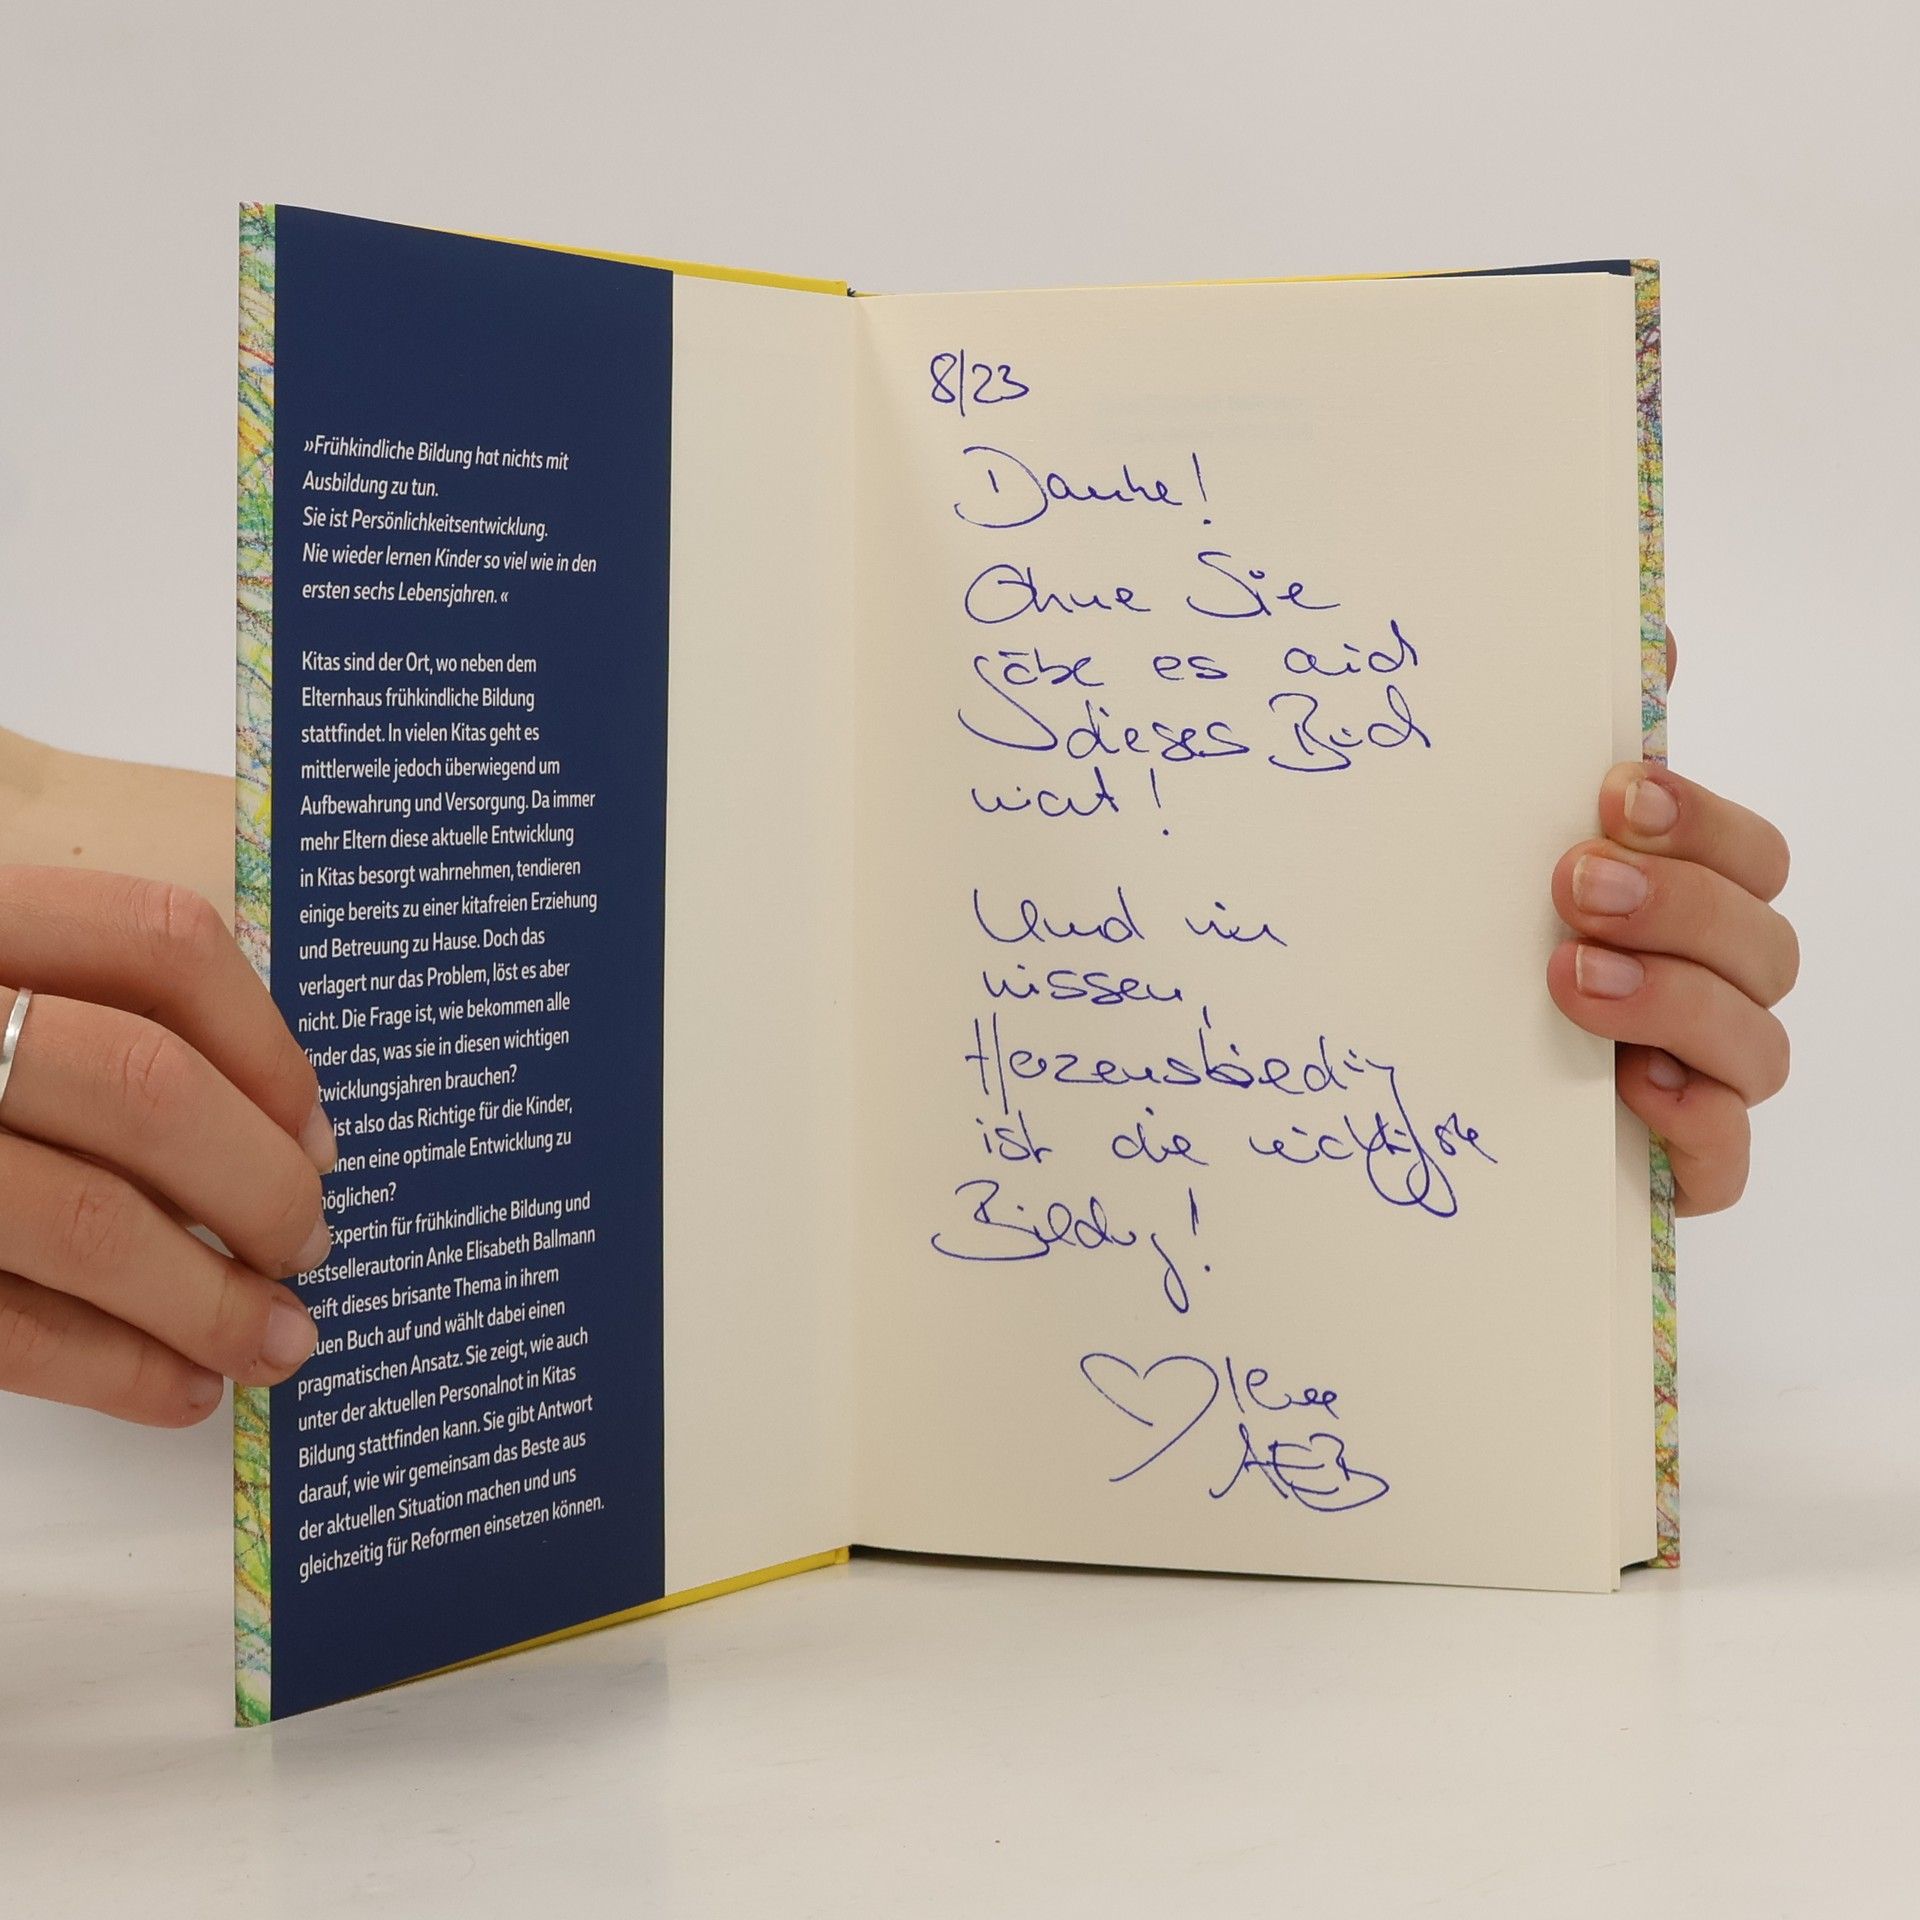 »Frühkindliche Bildung hat nichts mit
Ausbildung zu tun.
Sie ist Persönlichkeitsentwicklung.
Nie wieder lernen Kinder so viel wie in den
ersten sechs Lebensjahren.«
Kitas sind der Ort, wo neben dem
Elternhaus frühkindliche Bildung
stattfindet. In vielen Kitas geht es
mittlerweile jedoch überwiegend um
Aufbewahrung und Versorgung. Da immer
mehr Eltern diese aktuelle Entwicklung
in Kitas besorgt wahrnehmen, tendieren
einige bereits zu einer kitafreien Erziehung
und Betreuung zu Hause. Doch das
verlagert nur das Problem, löst es aber
nicht. Die Frage ist, wie bekommen alle
inder das, was sie in diesen wichtigen
twicklungsjahren brauchen?
ist also das Richtige für die Kinder,
nen eine optimale Entwicklung zu
möglichen?
Expertin für frühkindliche Bildung und
Bestsellerautorin Anke Elisabeth Ballmann
reift dieses brisante Thema in ihrem
euen Buch auf und wählt dabei einen
pragmatischen Ansatz. Sie zeigt, wie auch
unter der aktuellen Personalnot in Kitas
Bildung stattfinden kann. Sie gibt Antwort
darauf, wie wir gemeinsam das Beste aus
der aktuellen Situation machen und uns
gleichzeitig für Reformen einsetzen können.
8/23
Danke!
Ohne Sie
gäbe es auch
dieses Buch
nicht!
Und wir
wissen,
Herzensbildung
ist die wichtigste
Bildung!
Ihre
AEB